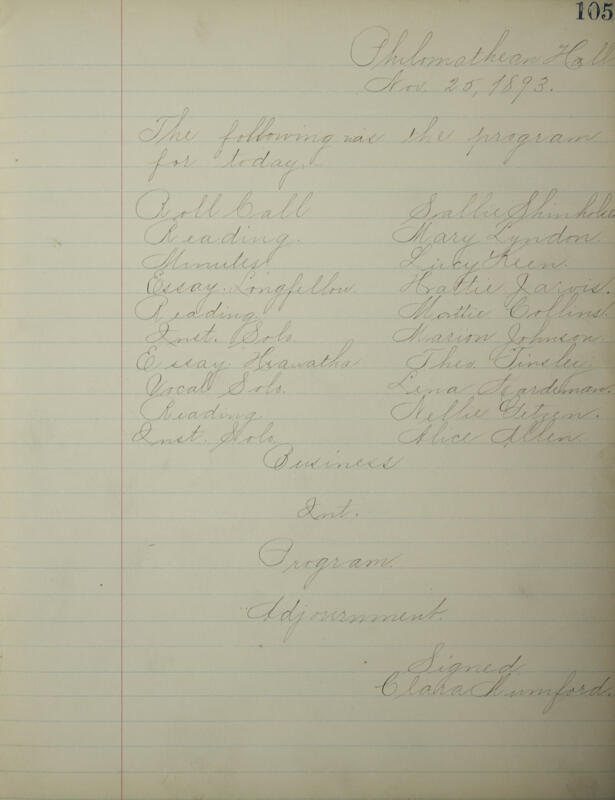 105
Philomathean Hall
Nov. 25, 1893.
The following was the program
for today.
Roll Call Sallie Shinholser
Reading. Mary Lyndon.
Minutes Lucy Keen.
Essay. Longfellow. Hattie Jarvis.
Reading Mattie Collins.
Inst. Solo Marion Johnson.
Essay. Hiawatha Theo. Tinsley.
Vocal Solo. Lena Hardeman.
Reading Nellie
Inst. Solo Alice Allen
Business
Int.
Program.
Adjournment.
Signed
Clara Mumford.